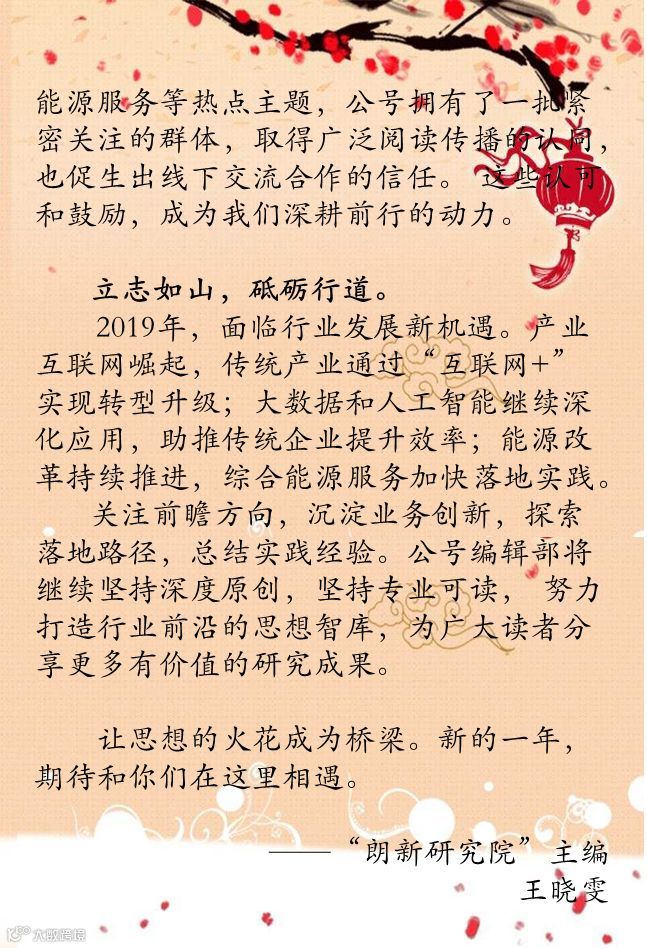 能源服务等热点主题，公号拥有了一批紧
密关注的群体，取得广泛阅读传播的认同，
也促生出线下交流合作的信任。 这些认可
和鼓励，成为我们深耕前行的动力。
立志如山，砥砺行道。
2019年，面临行业发展新机遇。产业
互联网崛起，传统产业通过“互联网+”
实现转型升级；大数据和人工智能继续深
化应用，助推传统企业提升效率；能源改
革持续推进，综合能源服务加快落地实践。
关注前瞻方向，沉淀业务创新，探索
落地路径，总结实践经验。公号编辑部将
继续坚持深度原创，坚持专业可读， 努力
打造行业前沿的思想智库，为广大读者分
享更多有价值的研究成果。
让思想的火花成为桥梁。新的一年，
期待和你们在这里相遇。
——“朗新研究院”主编
王晓雯
大数跨境